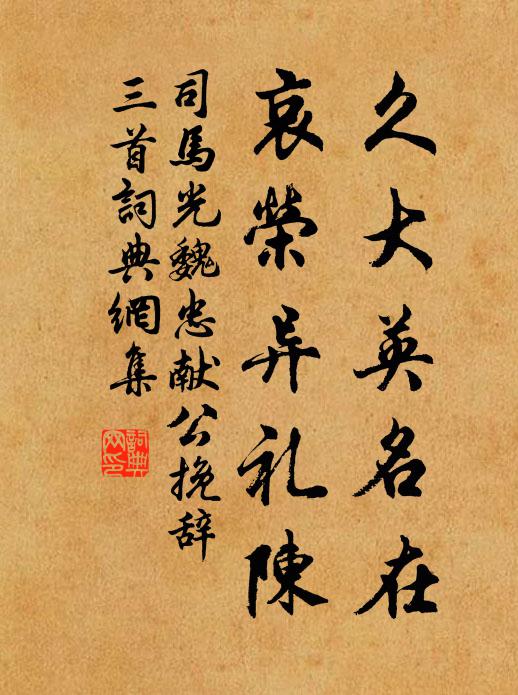 久大英名在
哀榮异礼陳
司馬光魏忠献公挽辞
三首詞典網集
詞典網印